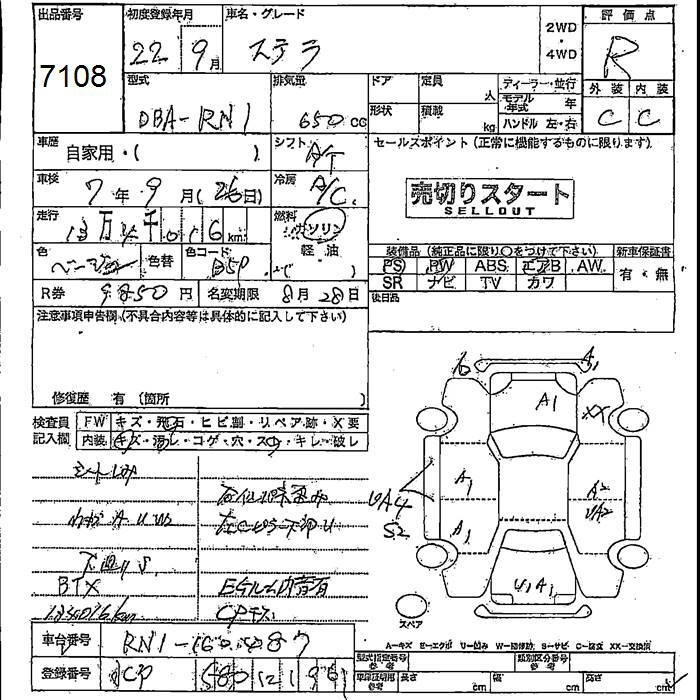 出品番号
7108
初度登録年月
22 9月
車名・グレード
ステラ
2WD
・
4WD
評価点
R
型式
DBA-RN1
排気量
650 cc
ドア
定員
人
形状
積載
kg
ディーラー・並行
モデル年式 年
ハンドル 左・右
外装 内装
C C
車歴
自家用・( )
シフト
A/T
セールスポイント(正常に機能するものに限ります)
売切りスタート
SELLOUT
車検
7年9月(26日)
冷房
A/C
走行
km
燃料
ガソリン
軽・油
色
ベージュ
色替
色コード
装備品(純正品に限り○をつけて下さい)
新車保証書
PS PW ABS エアB AW
SR ナビ TV カワ
有・無
R券
9850円
名変期限
8月28日
後日品
注意事項申告欄(不具合内容等は具体的に記入して下さい)
修復歴 有(箇所 )
検査員記入欄
FW キズ・飛石・ヒビ割・リペア跡・X要
内装 キズ・汚レ・コゲ・穴・スレ・キレ・破レ
A1
A1
XX
A1
A2
UA4
S2
A1
UA2
U1 A1
下廻りS
BTX
Eルーム内
スペア
A-キズ E-エクボ U-凹み W-補修跡 S-サビ C-腐食 XX-交換済
車台番号
RN1-
登録番号
CP
型式指定番号
参考
類別区分番号
参考
車庫証明用
参考
長さ cm
幅 cm
高さ cm